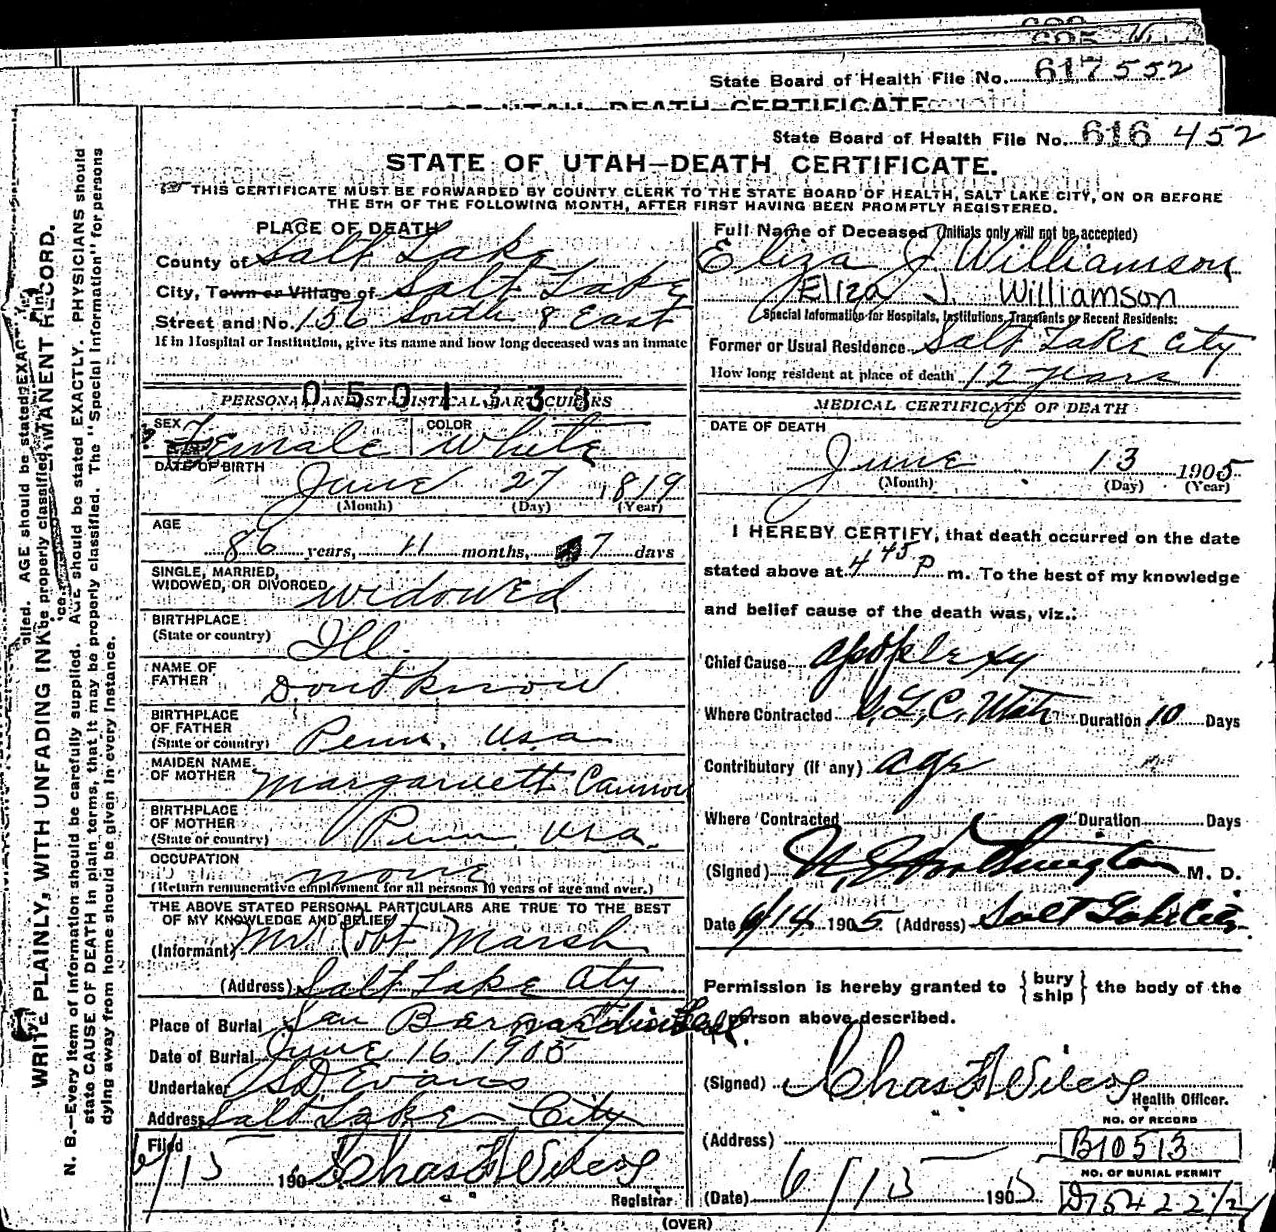 State Board of Health File No. 617 552
State Board of Health File No. 616 452
STATE OF UTAH—DEATH CERTIFICATE.
THIS CERTIFICATE MUST BE FORWARDED BY COUNTY CLERK TO THE STATE BOARD OF HEALTH, SALT LAKE CITY, ON OR BEFORE
THE 5TH OF THE FOLLOWING MONTH, AFTER FIRST HAVING BEEN PROMPTLY REGISTERED.
WRITE PLAINLY, WITH UNFADING INK
MANENT RECORD.
N. B.—Every item of information should be carefully supplied. AGE should be stated EXACTLY. PHYSICIANS should
state CAUSE OF DEATH in plain terms, that it may be properly classified. The "Special Information" for persons
dying away from home should be given in every instance.
PLACE OF DEATH
County of Salt Lake
City, Town or Village of Salt Lake
Street and No. 156 South 8 East
If in Hospital or Institution, give its name and how long deceased was an inmate
0501338
PERSONAL AND STATISTICAL PARTICULARS
SEX Female COLOR White
DATE OF BIRTH
June 27 1819
(Month) (Day) (Year)
AGE
86 years, 11 months, 7 days
SINGLE, MARRIED,
WIDOWED, OR DIVORCED widowed
BIRTHPLACE
(State or country) Ill.
NAME OF
FATHER Dont know
BIRTHPLACE
OF FATHER
(State or country) Penn. USA
MAIDEN NAME
OF MOTHER Margarett Cannon
BIRTHPLACE
OF MOTHER
(State or country) Penn. USA.
OCCUPATION none
(Return remunerative employment for all persons 10 years of age and over.)
THE ABOVE STATED PERSONAL PARTICULARS ARE TRUE TO THE BEST
OF MY KNOWLEDGE AND BELIEF
(Informant) Robt Marsh
(Address) Salt Lake City
Place of Burial San Bernardino Cal.
Date of Burial June 16 1905
Undertaker Evans
Address Salt Lake City
Filed
6/15 190 Chas F Wilcox
Registrar
Full Name of Deceased (Initials only will not be accepted)
Eliza J Williamson
Eliza J. Williamson
Special Information for Hospitals, Institutions, Transients or Recent Residents:
Former or Usual Residence Salt Lake City
How long resident at place of death 12 years
MEDICAL CERTIFICATE OF DEATH
DATE OF DEATH
June 13 1905
(Month) (Day) (Year)
I HEREBY CERTIFY, that death occurred on the date
stated above at 4 45 P m. To the best of my knowledge
and belief cause of the death was, viz.:
Chief Cause apoplexy
Where Contracted S.L.C. Utah Duration 10 Days
Contributory (if any) age
Where Contracted Duration Days
(Signed) Worthington M. D.
Date 6/14 1905 (Address) Salt Lake City
Permission is hereby granted to { bury
ship } the body of the
person above described.
(Signed) Chas F Wilcox
Health Officer.
NO. OF RECORD
(Address) B10513
NO. OF BURIAL PERMIT
(Date) 6/15 1905
(OVER)